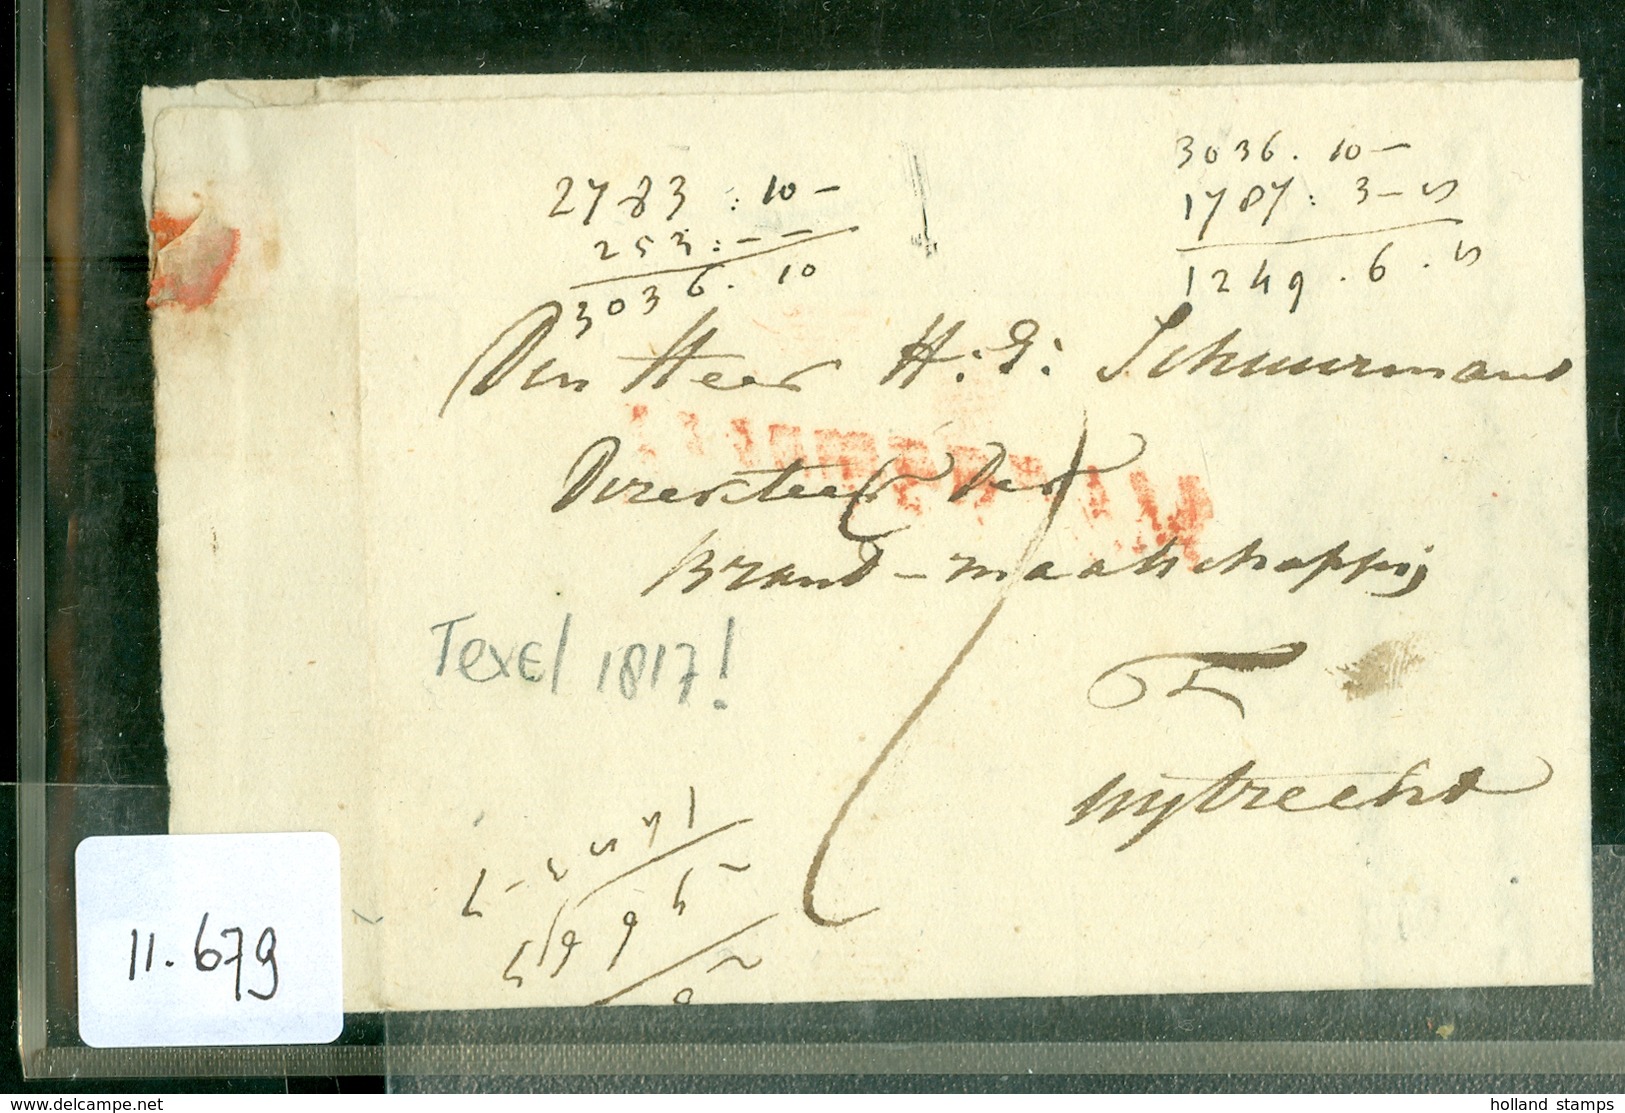 2783 : 10 -
253 : - -
3036. 10
3036. 10 -
1787: 3 - 5
1249. 6. 5
Den Heer H: G: Schuurmans
Directeur der
Brand-maatschappij
Te
Uytrecht
Texel 1817!
11.679
delcampe.net
holland stamps